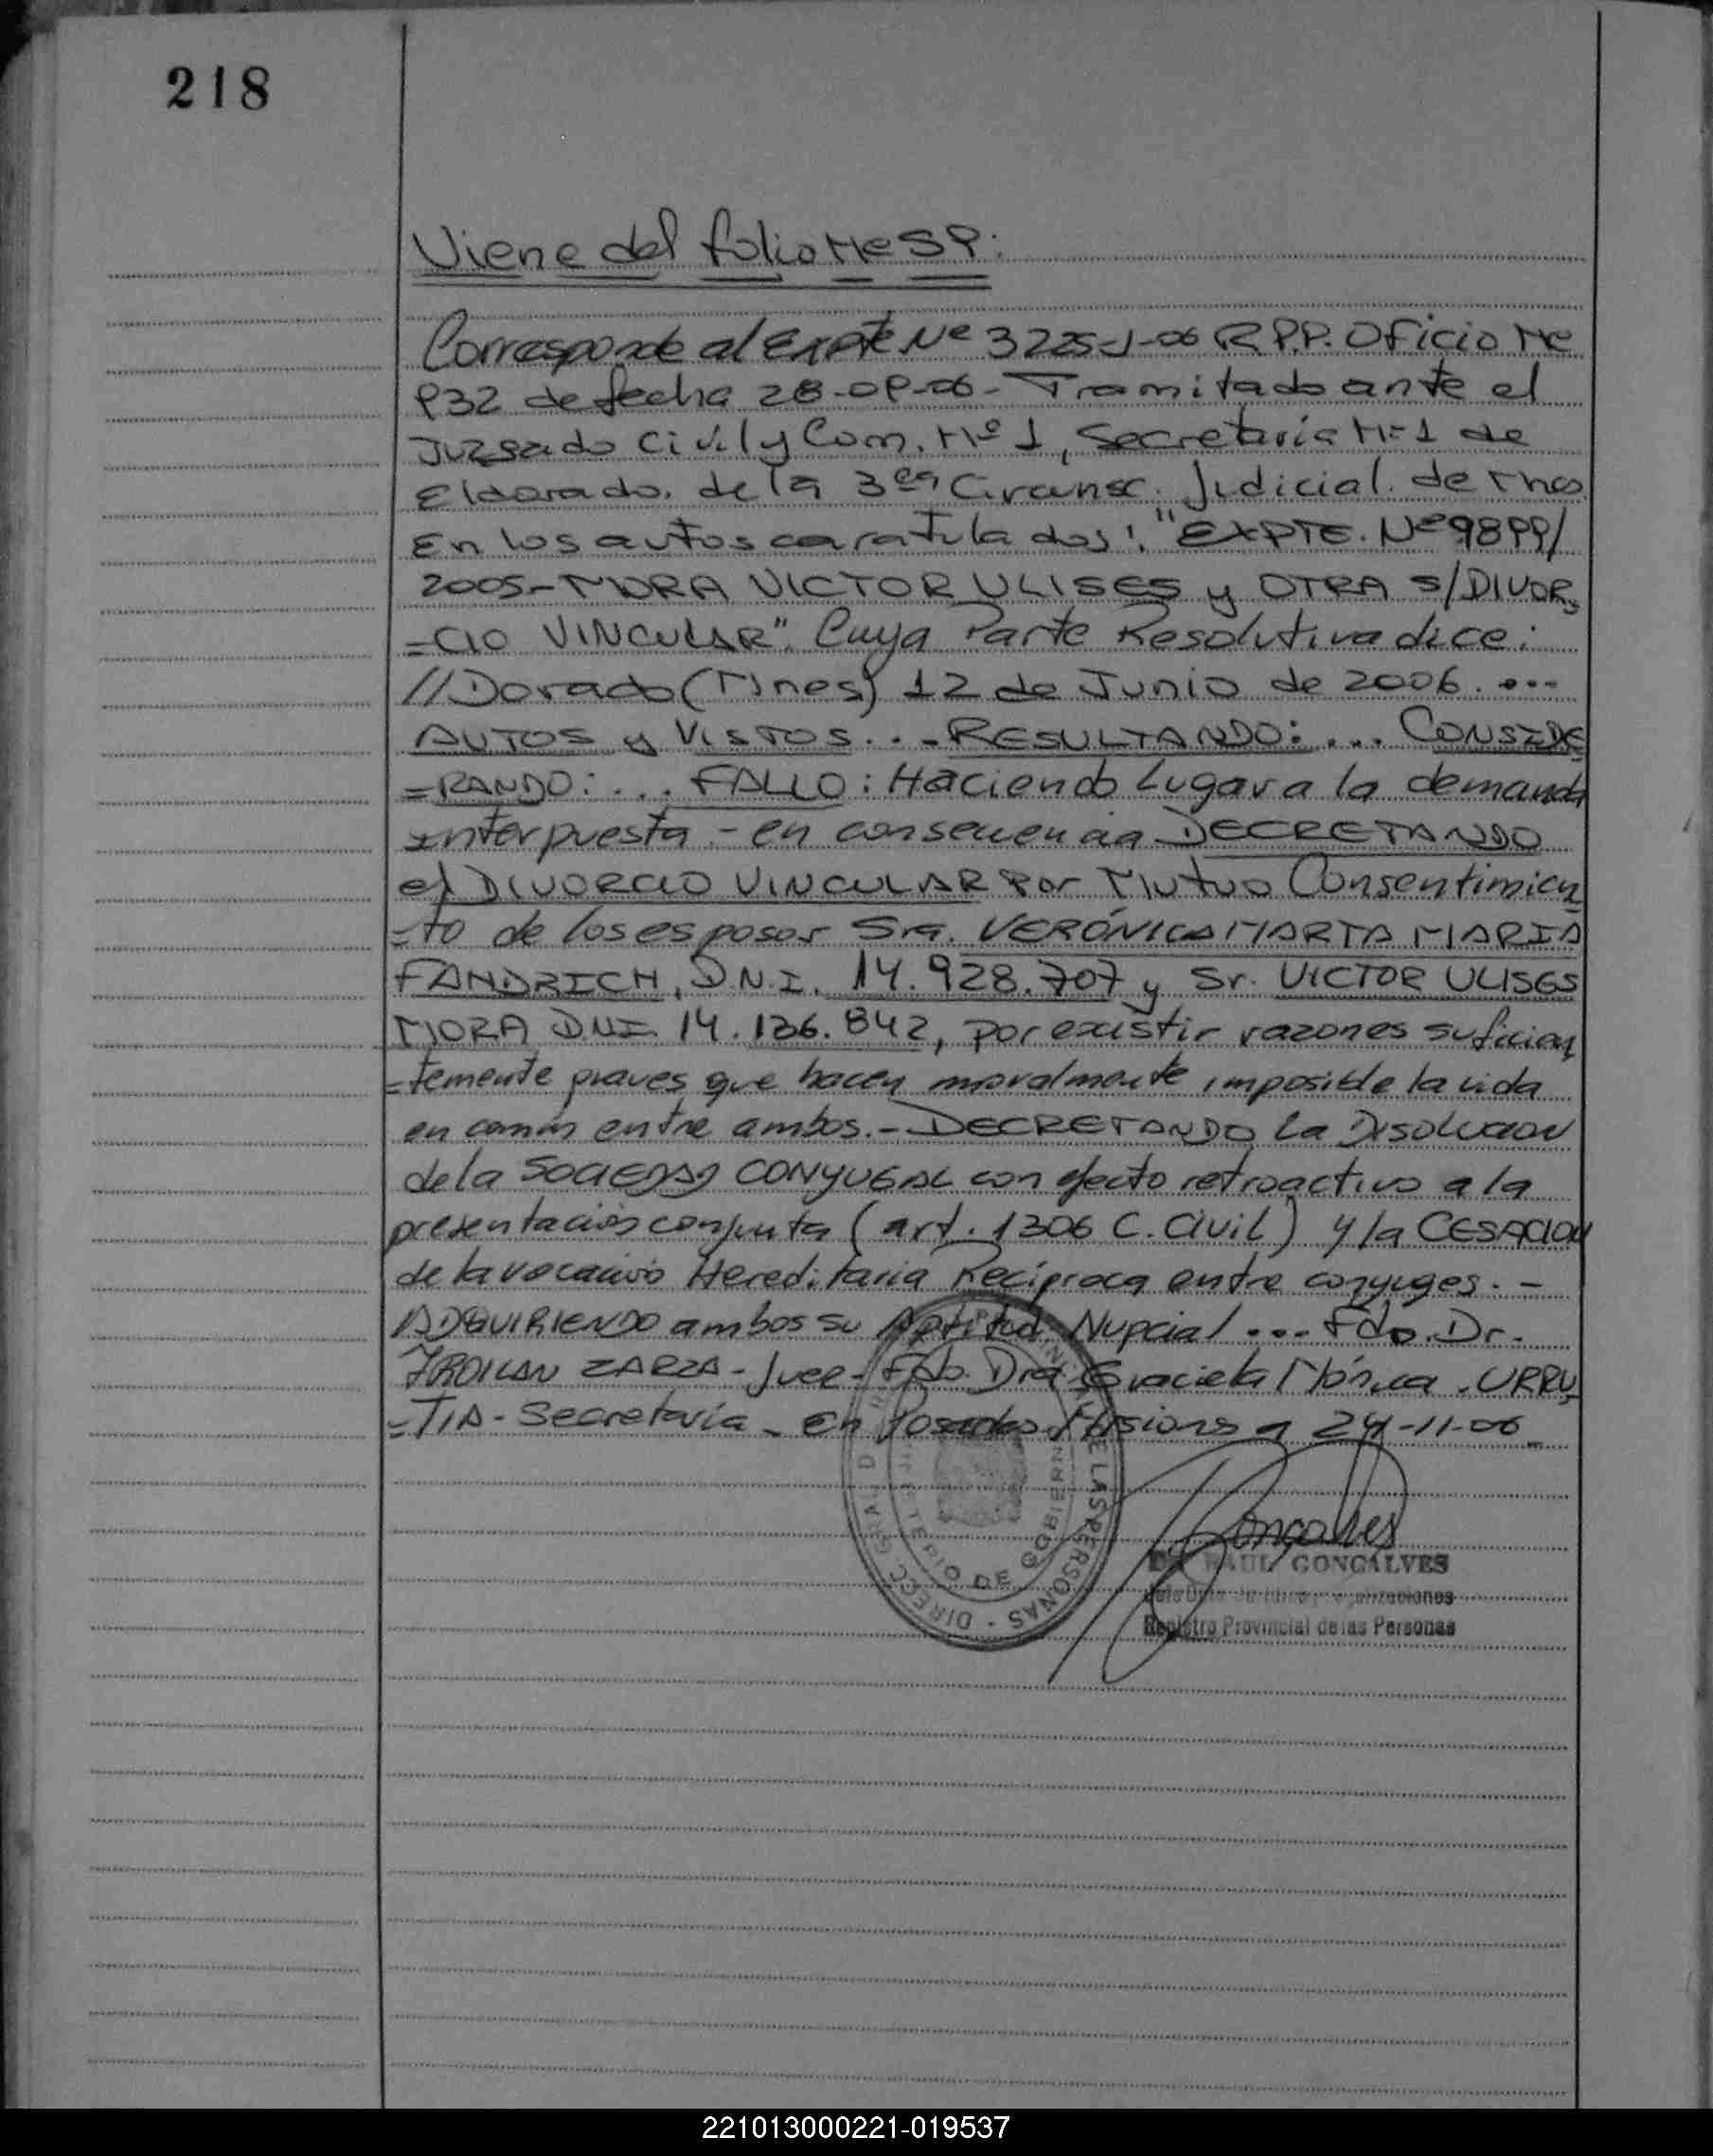 218
Viene del folio Nº 59:
Corresponde al Expte Nº 3225-J-06 R.P.P. Oficio Nº
932 de fecha 28-09-06- Tramitado ante el
Juzgado Civil y Com. Nº 1, Secretaria Nº 1 de
Eldorado. de la 3era Circunsc. Judicial. de Mnes
En los autos caratulados: "EXPTE. Nº 9899/
2005- MORA VICTOR ULISES y OTRA S/DIVOR,
=CIO VINCULAR". Cuya Parte Resolutiva dice:
//Dorado (Mnes) 12 de Junio de 2006. ...
AUTOS y VISTOS... - RESULTANDO: ... CONSIDE
=RANDO: ... FALLO: Haciendo Lugar a la demanda
interpuesta - en consecuencia DECRETANDO
el DIVORCIO VINCULAR Por Mutuo Consentimien
=to de los esposos Sra. VERÓNICA MARTA MARIA
FANDRICH, D.N.I. 14.928.707 y Sr. VICTOR ULISES
MORA DNI. 14.136.842, por existir razones suficien
=temente graves que hacen moralmente imposible la vida
en común entre ambos.- DECRETANDO la Disolucion
de la SOCIEDAD CONYUGAL con efecto retroactivo a la
presentación conjunta (art. 1306 C. Civil) y la CESACION
de la vocación Hereditaria Recíproca entre conyuges. -
ADQUIRIENDO ambos su Aptitud Nupcial ... Fdo. Dr.
FROILAN ZARZA - Juez - Fdo. Dra. Graciela Mónica. URRU
=TIA - Secretaría - En Posadas Misiones a 24-11-06
RAUL GONCALVES
Registro Provincial de las Personas
DIRECC GRAL D R DE LAS PERSONAS -
MINISTERIO DE GOBIERNO
221013000221-019537